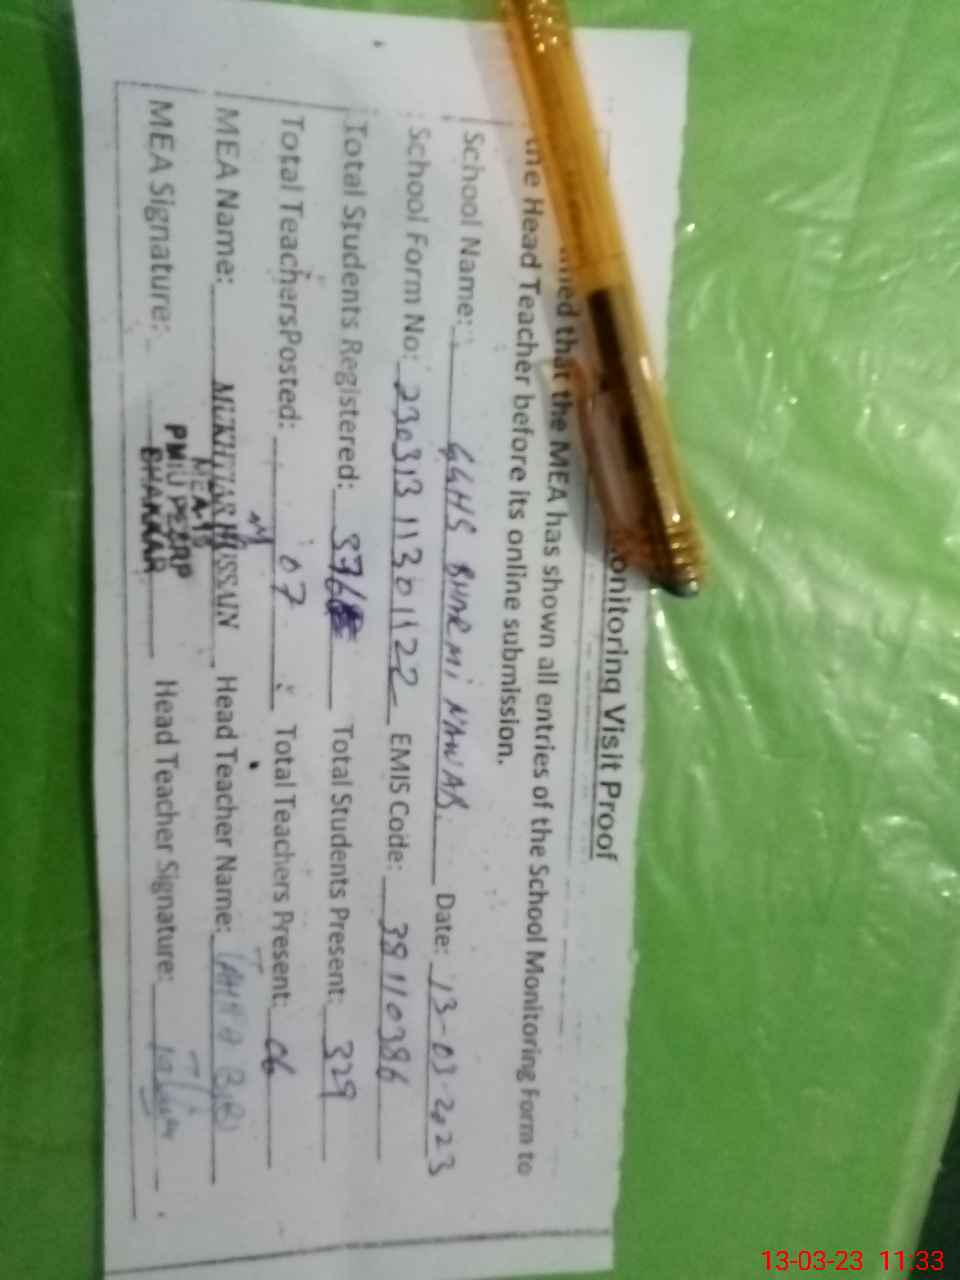 onitoring Visit Proof
that the MEA has shown all entries of the School Monitoring Form to
the Head Teacher before its online submission.
School Name: GGHS BHARMI NAWAB Date: 13-03-2023
School Form No: 230313 11301122 EMIS Code: 39110386
Total Students Registered: 376 Total Students Present: 329
Total TeachersPosted: 07 Total Teachers Present: 06
MEA Name: MUKHTIAR HUSSAIN Head Teacher Name: BiBi
MEA Signature: Head Teacher Signature:
MEA-15
PMIU PESRP
BHAKKAR
13-03-23 11:33